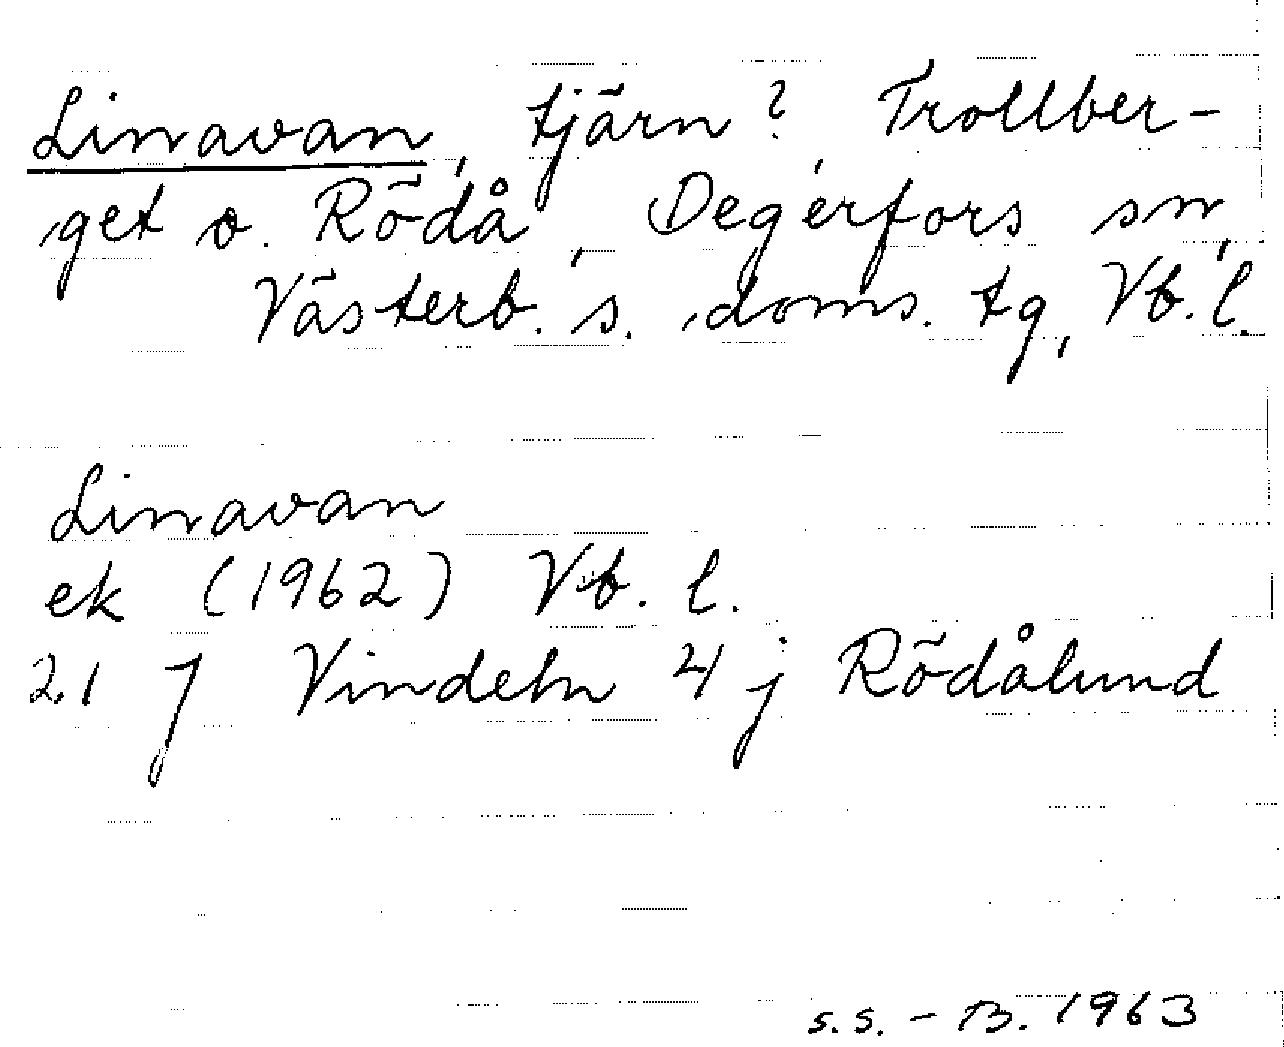 Linavan, tjärn? Trollber-
get o. Rödå, Degerfors sn,
Västerb. s. doms. tg, Vb. l.
Linavan
ek (1962) Vb. l.
21 J Vindeln 4 j Rödålund
s.s. - B. 1963